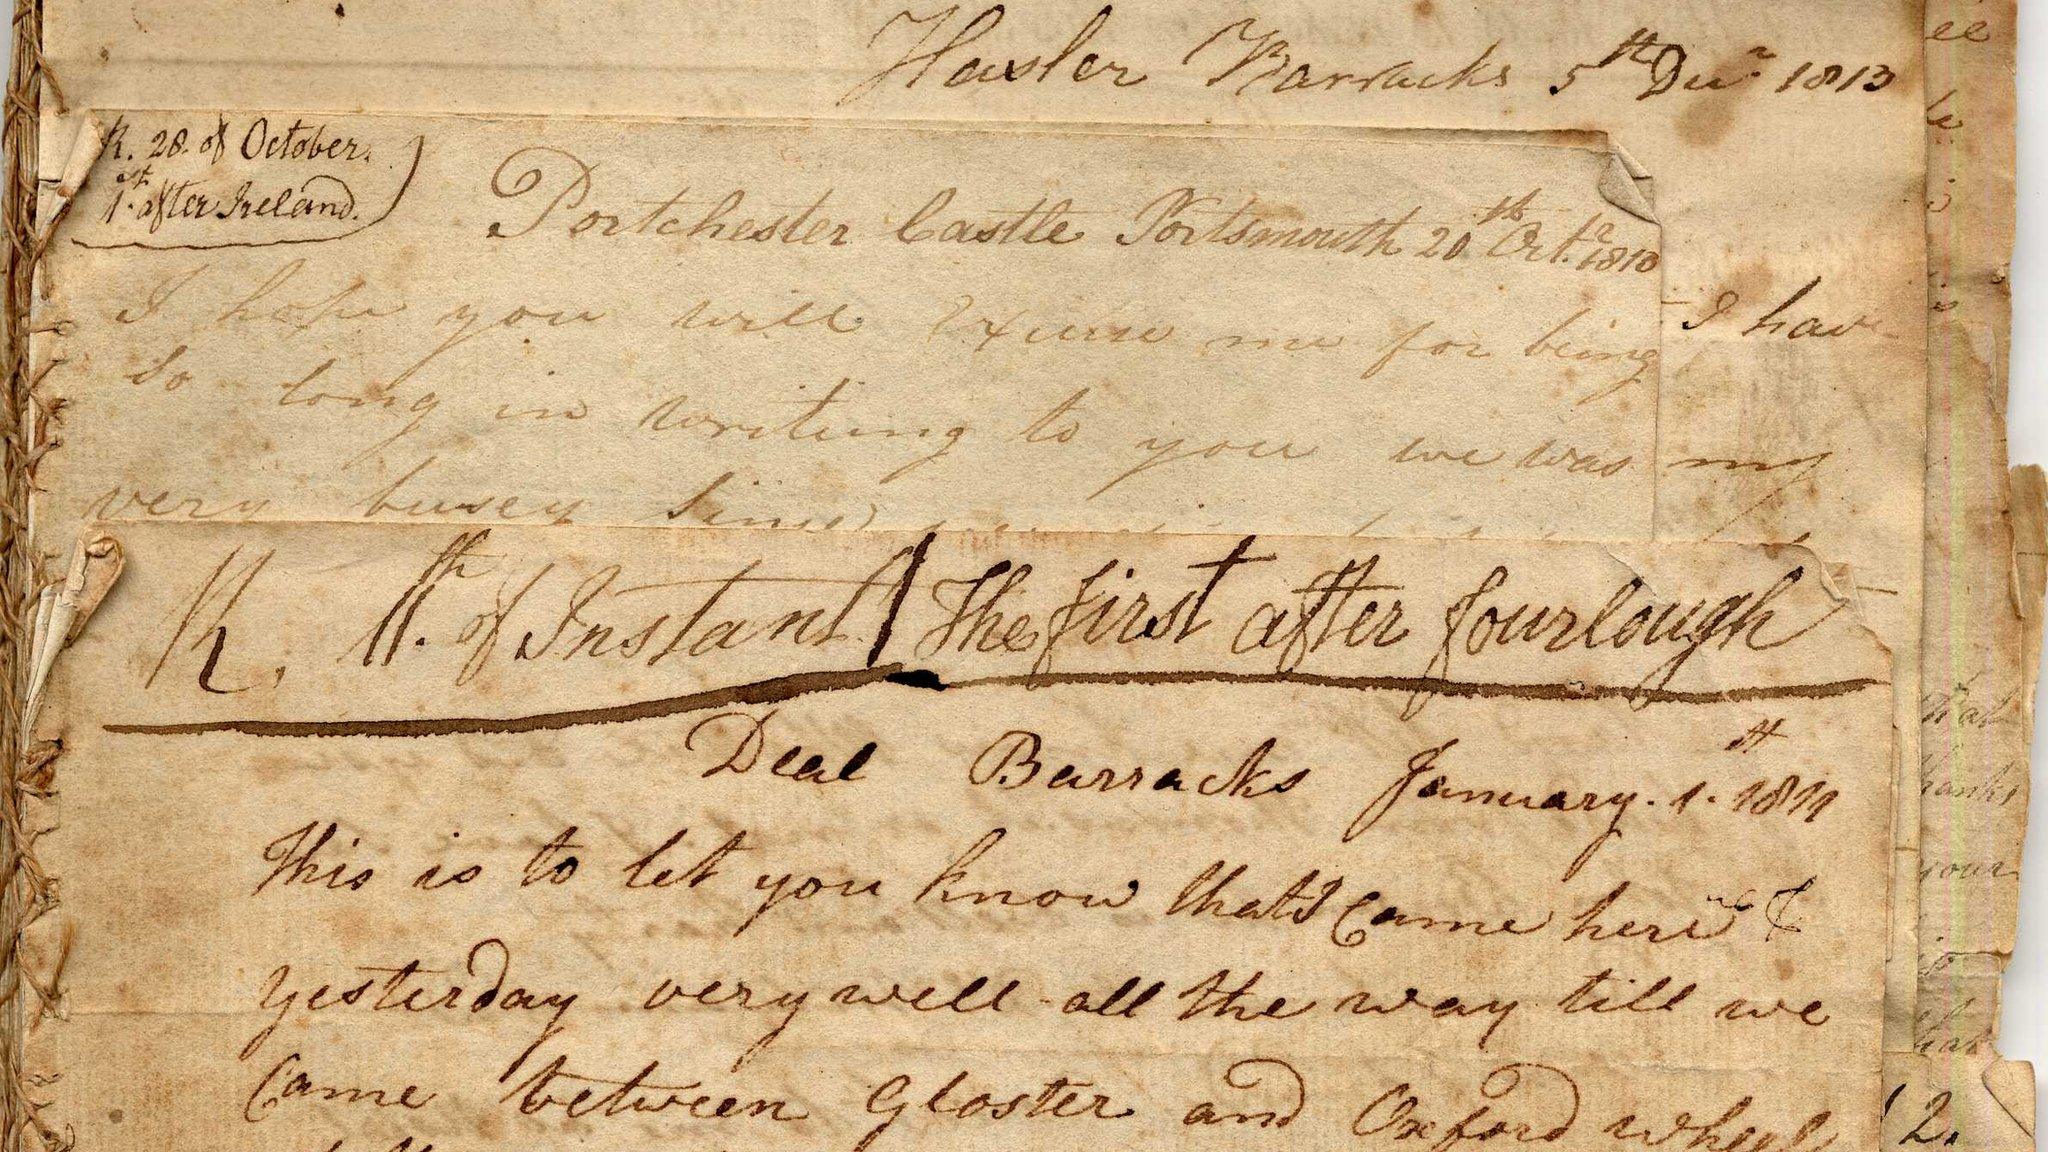 Hasler Barracks 5th Decr 1813
R. 28. of October.
1st after Ireland.
Portchester Castle Portsmouth 20th Octr 1810
I hope you will Excuse me for being
I have
So long in writing to you we was
my
very busey Since
R. 11th of Instant The first after fourlough
Deal Barracks January. 1. 1811
This is to let you know that I Came here
yesterday very well all the way till we
Came between Gloster and Oxford
that
thanks
your
2.